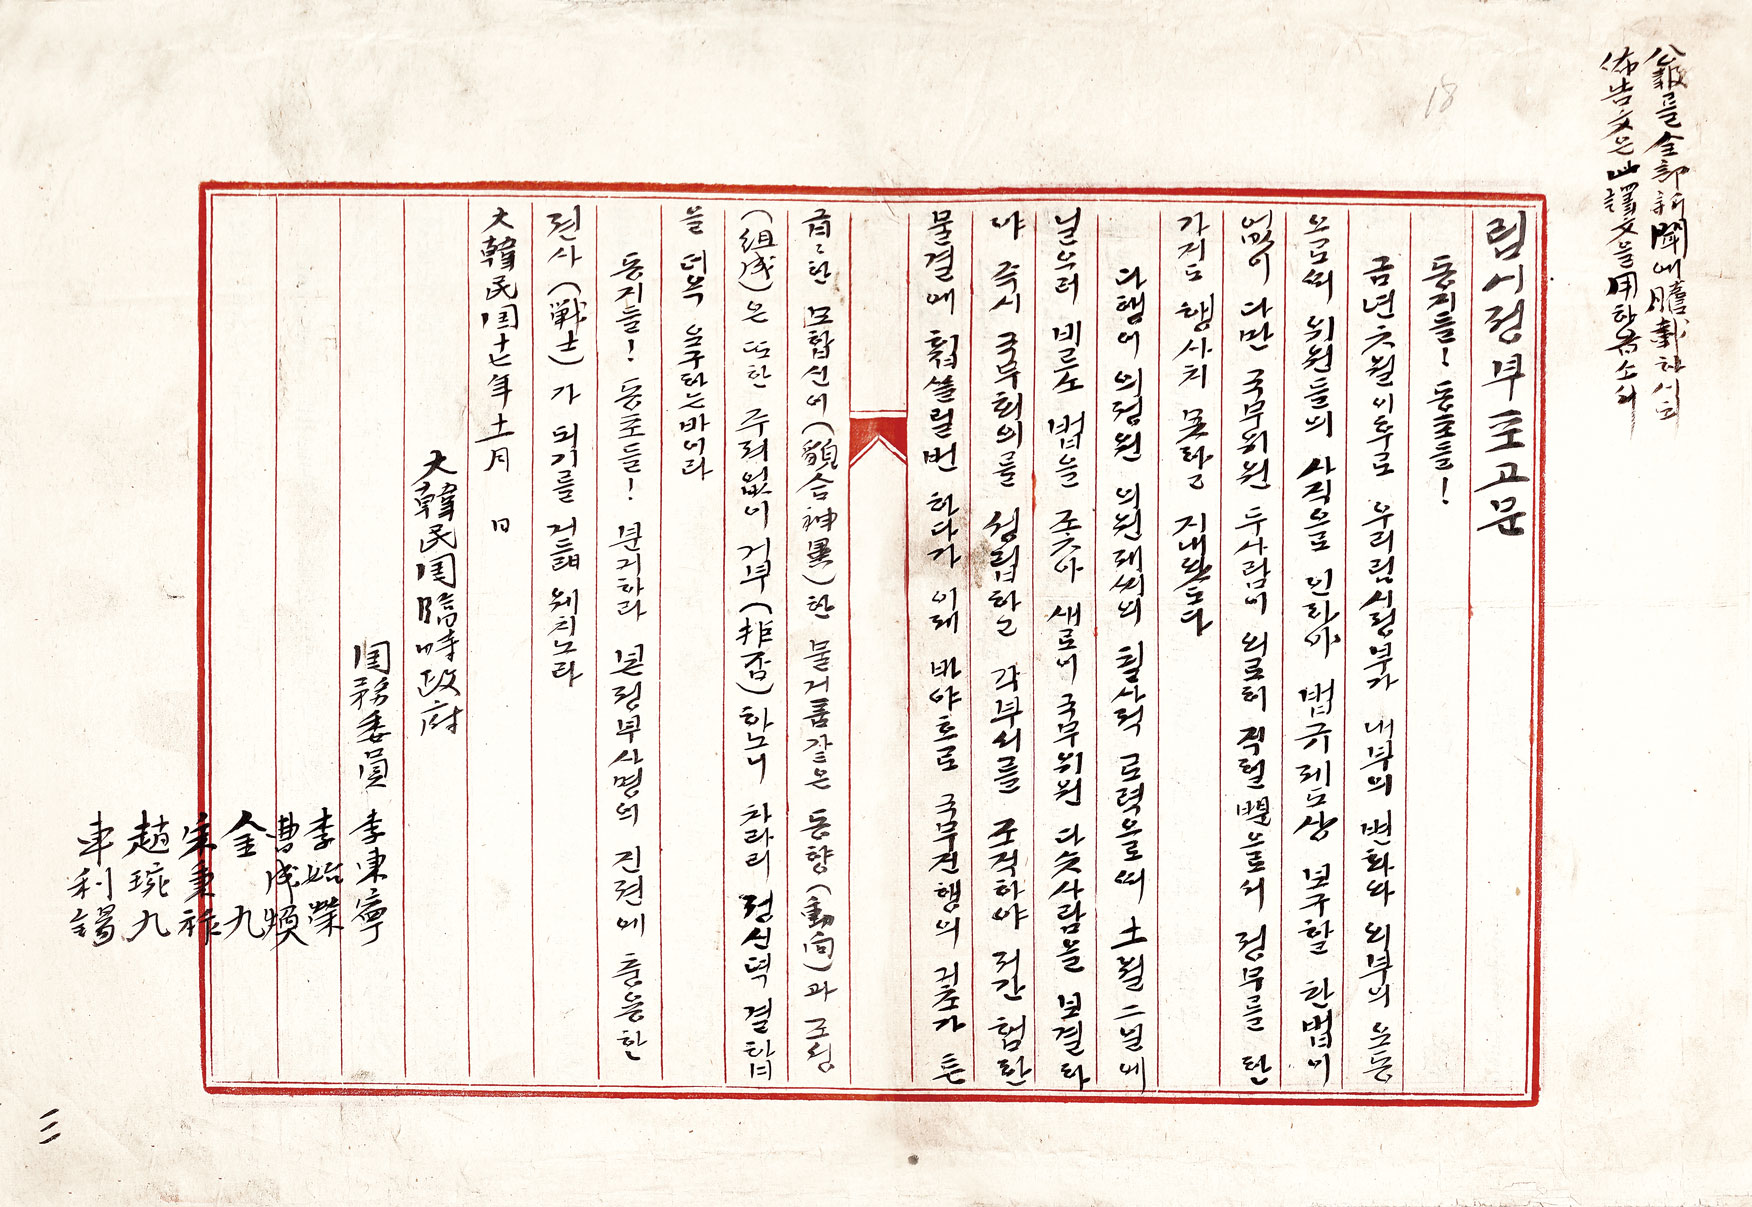 公報를 全部 新聞에 謄載하시고
佈告文은 此譯文을 用하옵소서
18
림시정부포고문
동지들! 동포들!
금년 六월이후로 우리림시정부가 내부의 변화와 외부의 노동
으로써 위원들의 사직으로 인하야 법규례도상 보구할 한법이
없이 다만 국무위원 두사람이 외로히 직현뿐으로서 정무를 단
가지도 행사치 못하고 지내왔도다
다행이 의정원 의원제씨의 필사적 로력으로써 十월 二일에
닐으러 비로소 법을 조츠아 새로이 국무위원 다숫사람을 보결하
야 즉시 국무회의를 성립하고 각부서를 조직하야 저간 험한
물결에 휩쓸릴번 하다가 이제 바야흐로 국무진행의 기초가 튼
튼한 모합신이(貌合神異)한 물거품같은 동향(動向)과 조성
(組成)은 또한 주저없이 거부(拒否)하노니 차라리 정신덕 결합
을 더욱 요구하는바이라
동지들! 동포들! 분기하라 본정부사명의 진전에 충용한
전사(戰士)가 되기를 거듭 웨치노라
大韓民国十七年十一月 日
大韓民国臨時政府
国務委員 李東寧
李始榮
曺成煥
金九
宋秉祚
趙琬九
車利錫
二